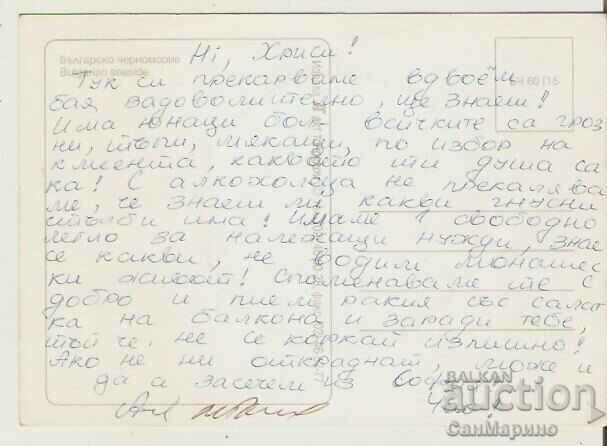 Hi, Криси!
Българско черноморие
Bulgarian seaside
Тук си прекарваме вдвоём
бая задоволително, ще знаеш!
Има юнаци бол- всичките са гроз
ни, тъпи, мякащи, по избор на
клиента, каквото ти душа са
ка! С алкохолеца не прекалява
ме, че знаеш ли какви гнусни
стълби има! Имаме 1 свободно
легло за належащи нужди, знае
се какви, не водим монашес
ки живот! Споменаваме те с
добро и пием ракия със салат
ка на балкона и заради тебе,
тъй че не се коркай излишно!
Ако не ни откраднат, може и
да а засечем из
BALKAN
auction
СанМарино